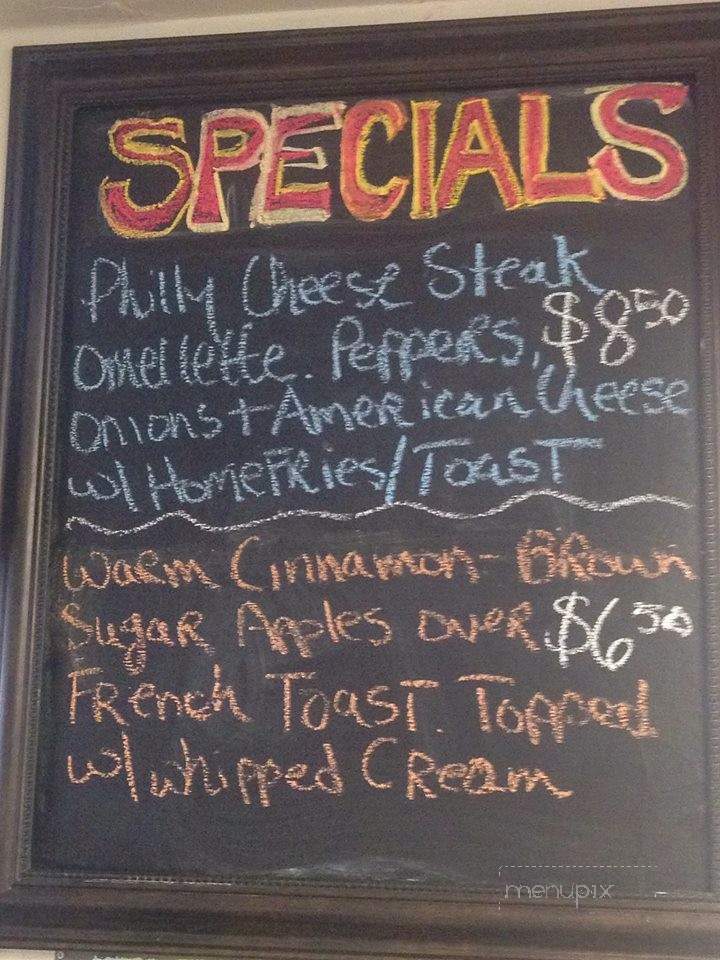 SPECIALS
Philly Cheese Steak
Omellette. Peppers, $8.50
Onions + American Cheese
w/ HomeFries/Toast
Warm Cinnamon-Brown
Sugar Apples over $6.50
French Toast. Topped
w/ whipped Cream
menupix